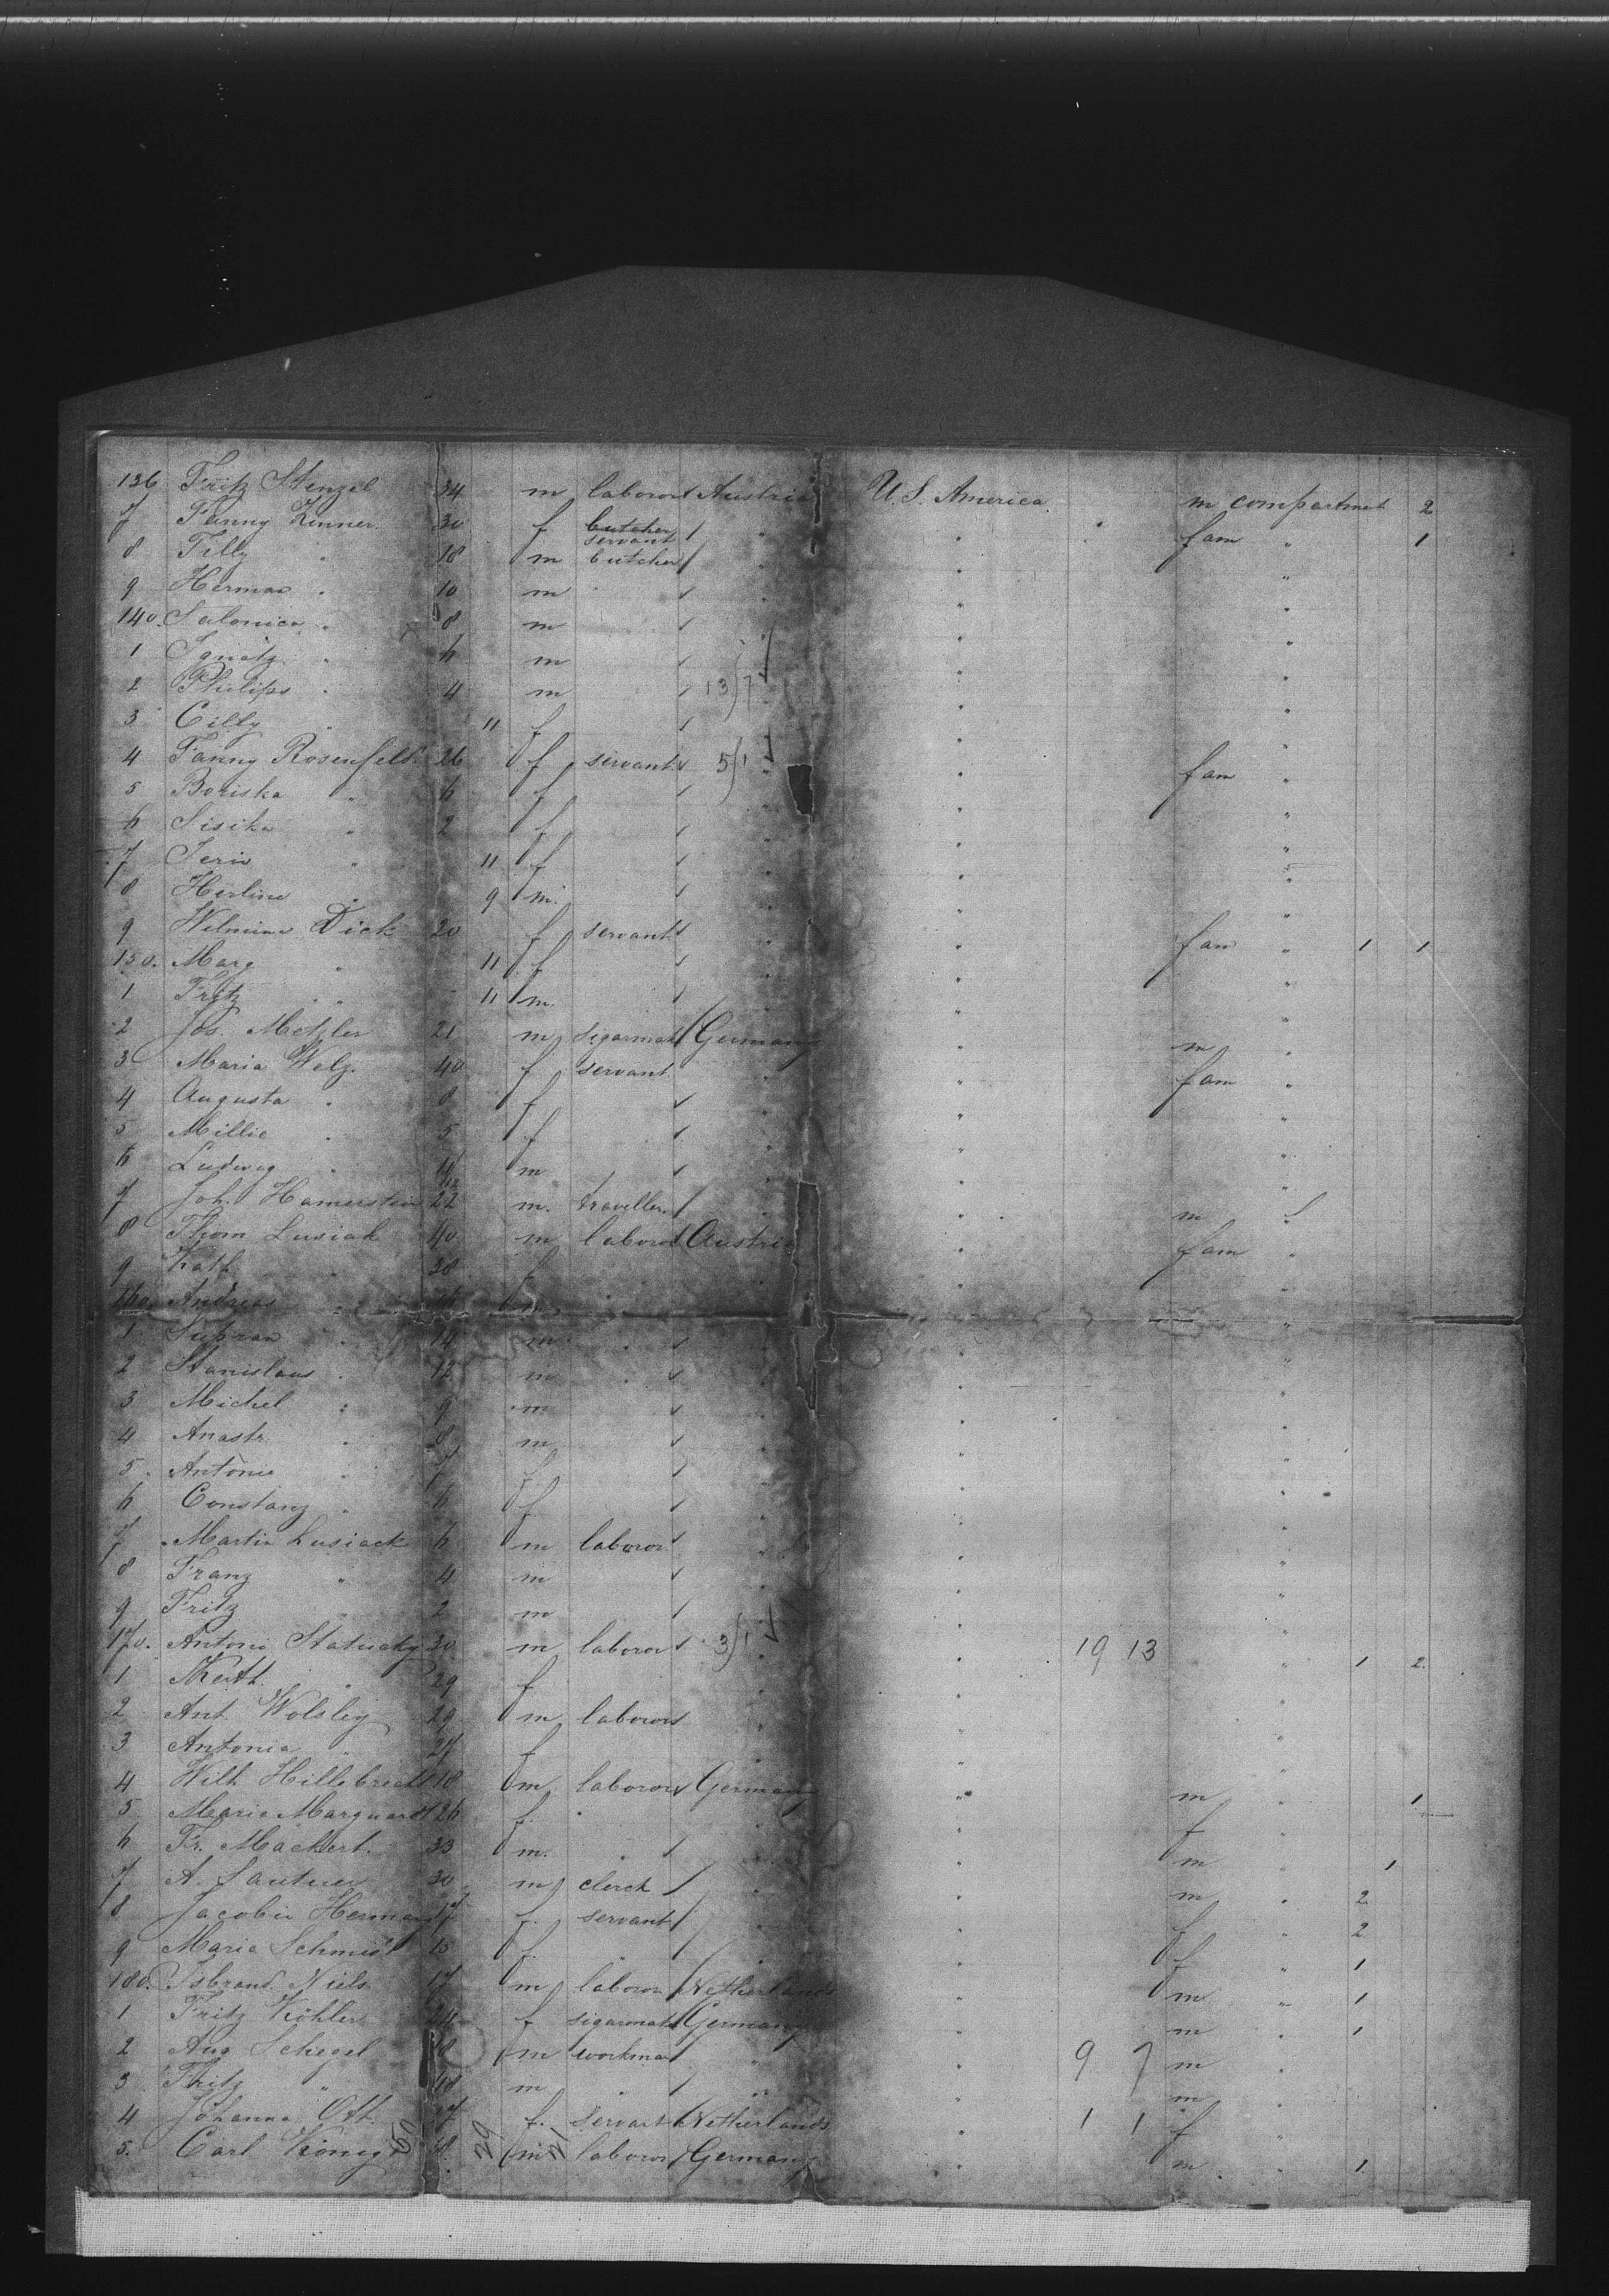 136 Fritz Stenzel 34 m laborer Austria U.S. America. m compartment 2
7 Fanny Zinner 30 f butcher servant " " fam " 1
8 Tilly " 18 m butcher " " "
9 Herman " 10 m " " "
140. Salonica " 8 m " " "
1 Ignatz " 6 m " " "
2 Philipp " 4 m 13)7 " " "
3 Cilly " 11 f " " "
4 Fanny Rosenfeld 26 f servant 5)1 " " fam "
5 Boriska " 6 f " " "
6 Sisika " 2 f " " "
7 " 11 f " " "
8 " 9 m. " " "
9 Dick 20 f servant " " fam " 1 1
150. Marg " 11 f " " "
1 Fritz " 11 m. " " "
2 Jos. Metzler 21 m sigarmak Germany " m "
3 Maria Welz. 40 f servant " " fam "
4 Augusta " 8 f " " "
5 Millie " 5 f " " "
6 Ludwig " m " " "
7 Joh. Hamerstein 22 m. traveller " " m "
8 Thom Lusiak 40 m laborer Austria " fam "
9 Kath " 38 f " " "
160. Andreas " m " " "
1 " 14 m " " " "
2 Stanislaus " 12 m " " " "
3 Michel " 9 m " " "
4 Anastr. " 8 m " " "
5. Antonie " 7 f " " "
6 Constanz " 6 f " " "
7 Martin Lusiack 6 m laborer " " "
8 Franz " 4 m " " "
9 Fritz " 2 m " " "
170. Antoni 30 m laborer 3)1 " " 19 13 " 1 2.
1 " 29 f " " "
2 Ant. 29 m laborer " " "
3 Antonia " 27 f " " "
4 Wilh Hillebrecht 18 m laborer Germany " m " 1
5 Marie Marguardt 26 f. " " " f "
6 Fr. Mackert. 33 m. " " " m " 1
7 A. Sautner 30 m clerck " " m " 2
8 Jacobie Herman 17 f. servant " " f " 2
9 Marie Schmidt 15 f. " " " f " 1
180. Isbrand Niels 17 m laborer Netherlands " m " 1
1 Fritz Köhler 24 f sigarmak Germany " m " 1
2 Aug Schegel 18 m workman " " 9 7 m "
3 Fritz " 18 m " " " m "
4 Johanna Ott. f. servant Netherlands " 1 1 f "
5. Carl König 29 m 21 laborer Germany " m " 1